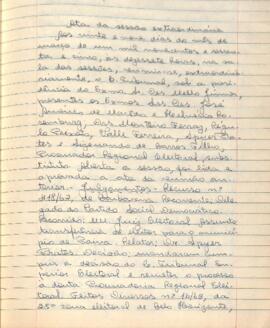 Ata da sessão extraordinária
Aos vinte e nove dias do mês de
março de um mil novecentos e sessen-
ta e cinco, às dezessete horas, na sa-
la das sessões, reuniu-se, extraordina-
riamente, o Tribunal, sob a pre-
sidência do Exmo. Sr. Des. Mello Júnior,
presentes os Exmos. Srs. Drs. José
e
Ferraz,
Peixoto, Valle Ferreira,
tes e de Barros Filho,
Procurador Regional Eleitoral, subs-
tituto. Aberta a sessão, foi lida e
aprovada a ata da reunião an-
terior. Julgamentos: Recurso nº
de Barbacena. Recorrente: Dele-
gado do Partido Social Democrático.
Recorrido: Juiz Eleitoral.
transferência de eleitor para o municí-
pio de Relator: Dr.
Decisão: mandaram cumprir
a decisão do C. Tribunal Su-
perior Eleitoral e remeter o processo
à douta Procuradoria Regional Elei-
toral. Feitos Diversos nº da
zona eleitoral de Belo Horizonte,